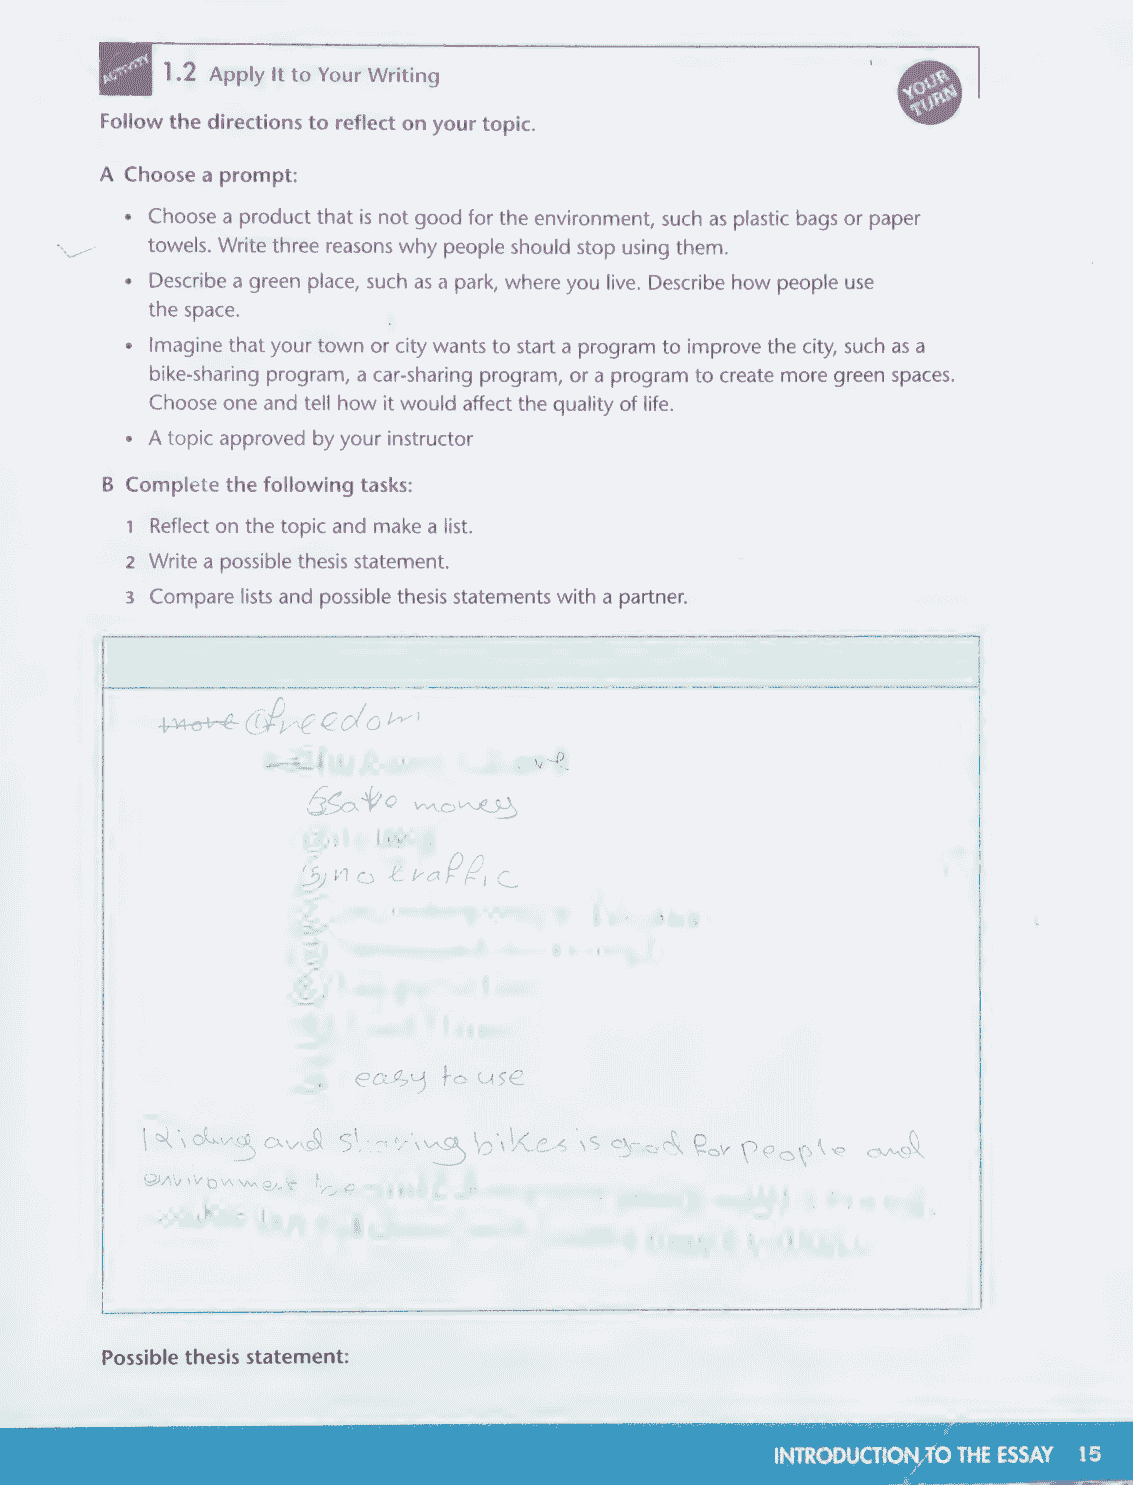 ACTIVITY
1.2 Apply It to Your Writing
YOUR TURN
Follow the directions to reflect on your topic.
A Choose a prompt:
• Choose a product that is not good for the environment, such as plastic bags or paper
towels. Write three reasons why people should stop using them.
• Describe a green place, such as a park, where you live. Describe how people use
the space.
• Imagine that your town or city wants to start a program to improve the city, such as a
bike-sharing program, a car-sharing program, or a program to create more green spaces.
Choose one and tell how it would affect the quality of life.
• A topic approved by your instructor
B Complete the following tasks:
1 Reflect on the topic and make a list.
2 Write a possible thesis statement.
3 Compare lists and possible thesis statements with a partner.
more freedom
money
5) no traffic
easy to use
Riding and sharing bikes is good for people and
environment
Possible thesis statement:
INTRODUCTION TO THE ESSAY 15